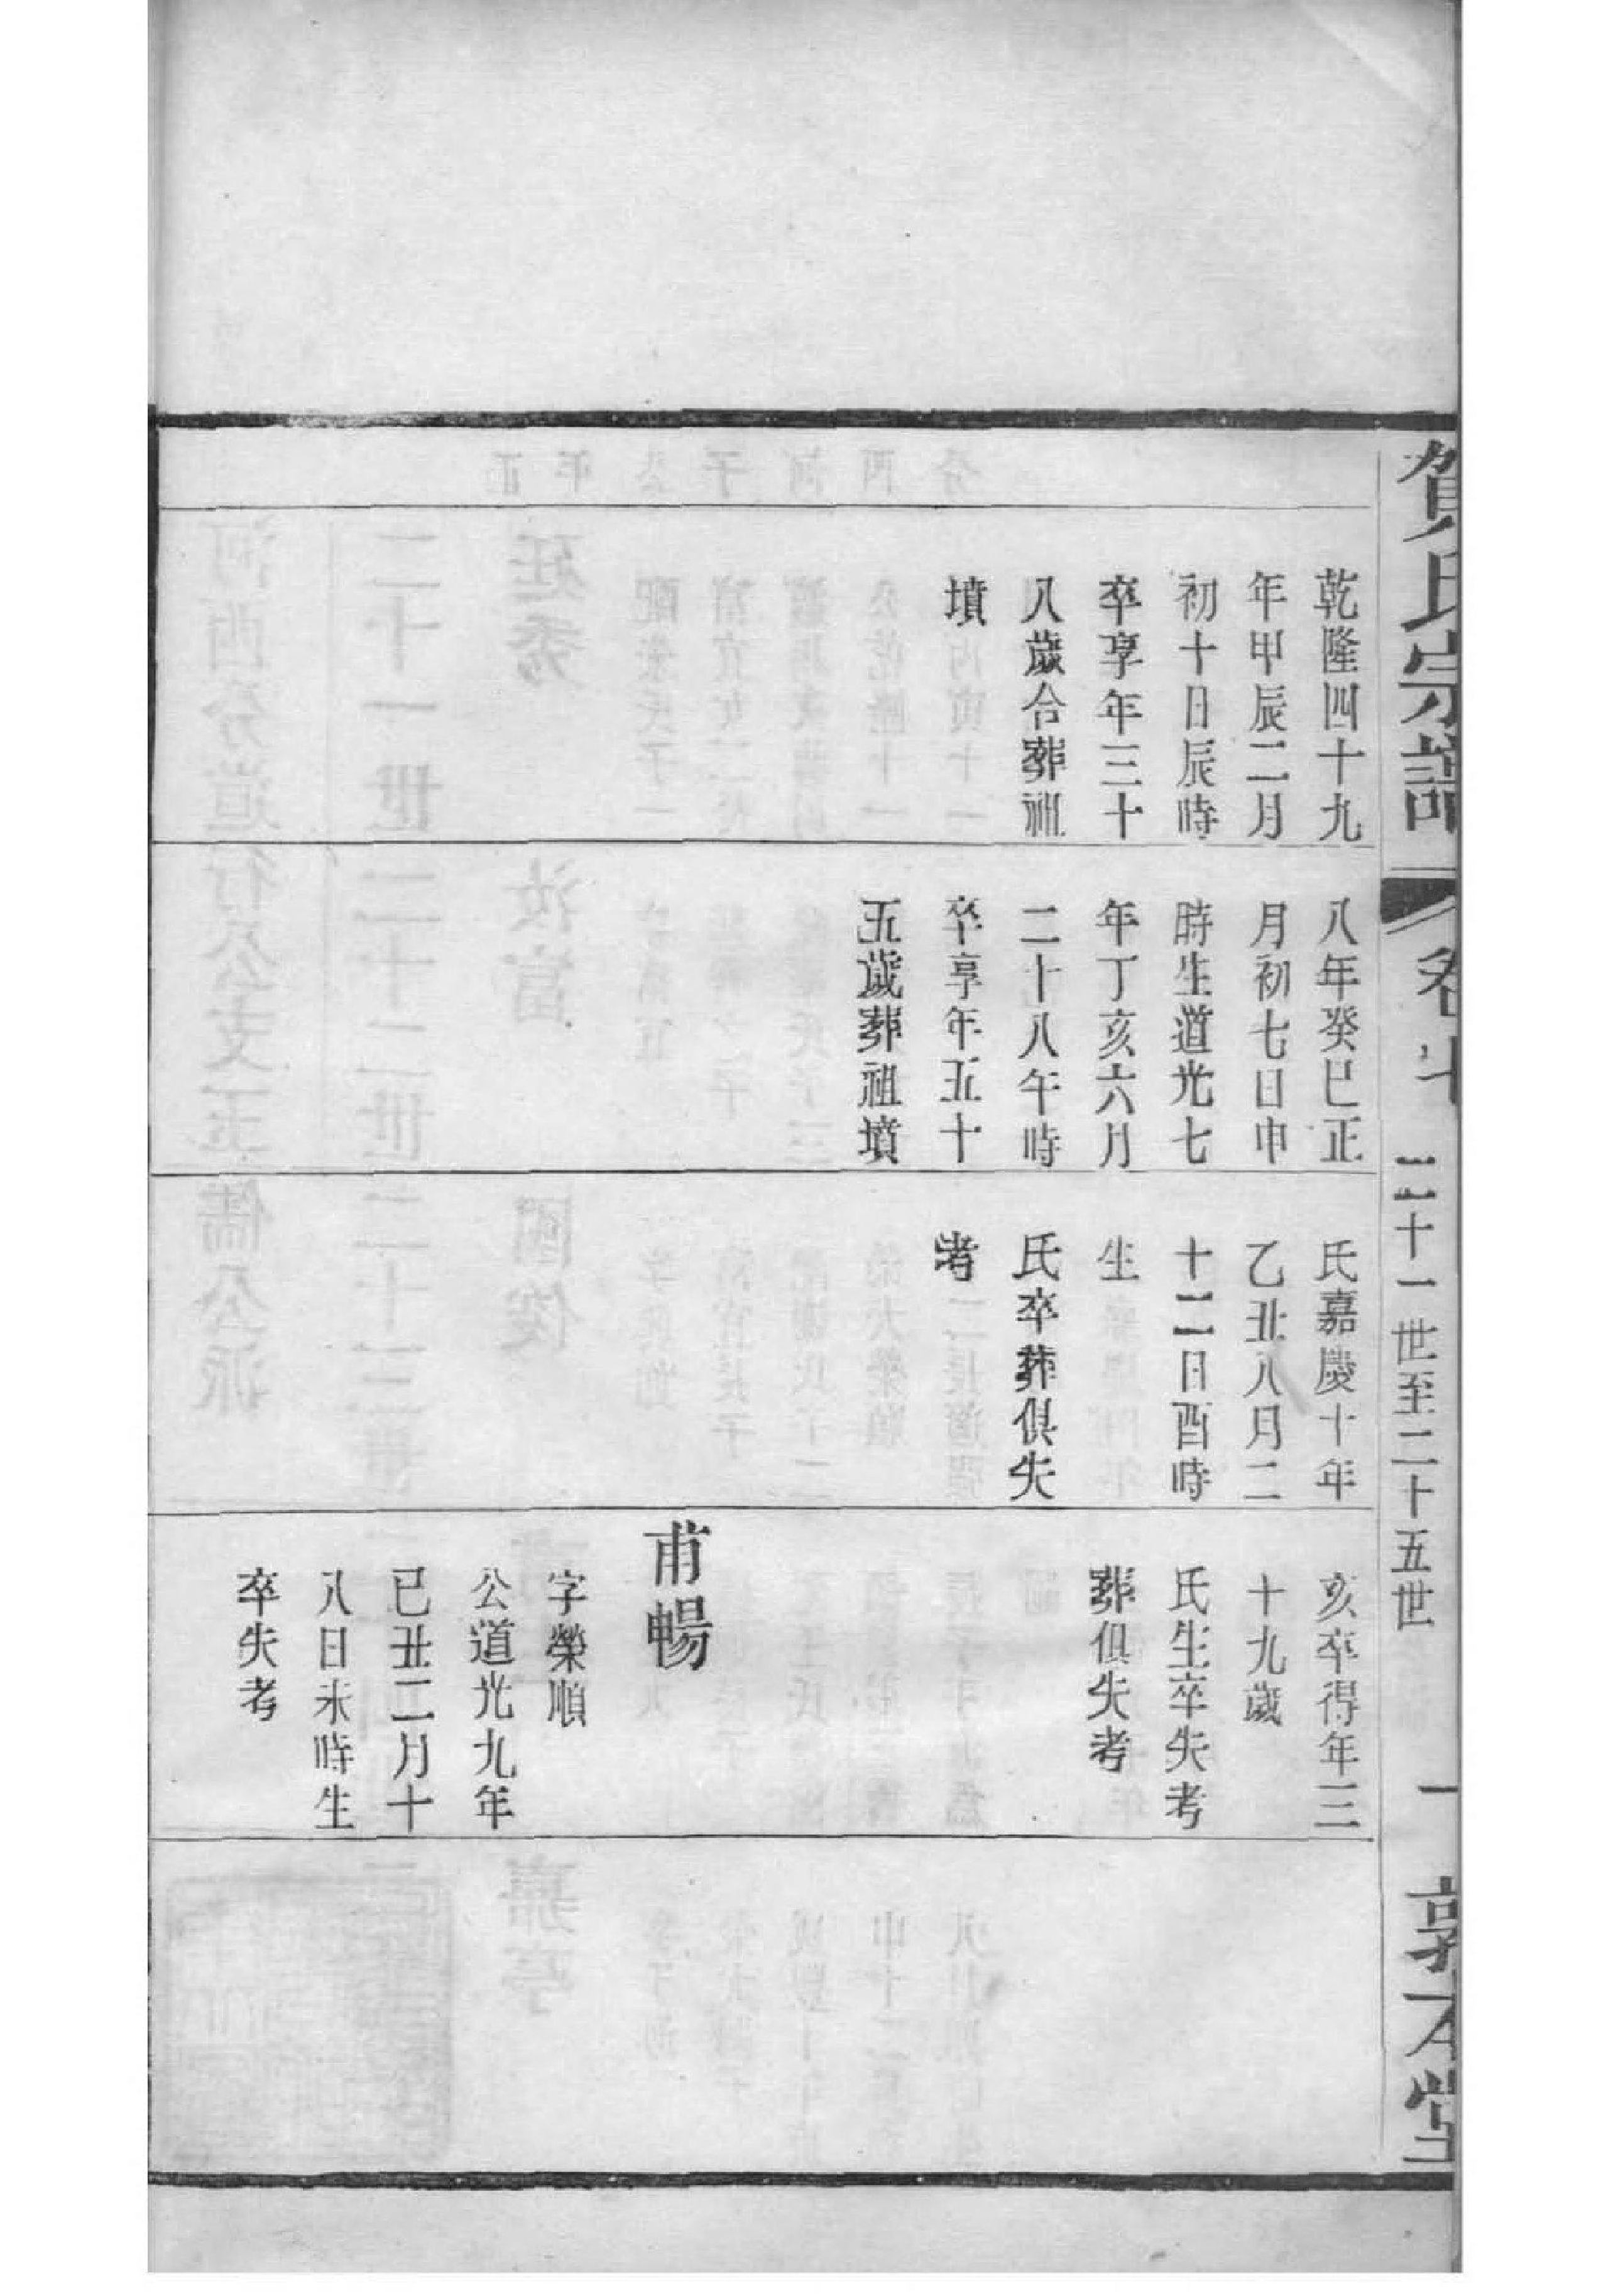 賀氏宗譜
卷七
二十一世至二十五世
一
敦本堂
乾隆四十九
年甲辰二月
初十日辰時
卒享年三十
八歲合葬祖
墳
八年癸巳正
月初七日申
時生道光七
年丁亥六月
二十八午時
卒享年五十
五歲葬祖墳
氏嘉慶十年
乙丑八月二
十二日酉時
生
氏卒葬俱失
考
亥卒得年三
十九歲
氏生卒失考
葬俱失考
甫暢
字榮順
公道光九年
已丑二月十
八日未時生
卒失考